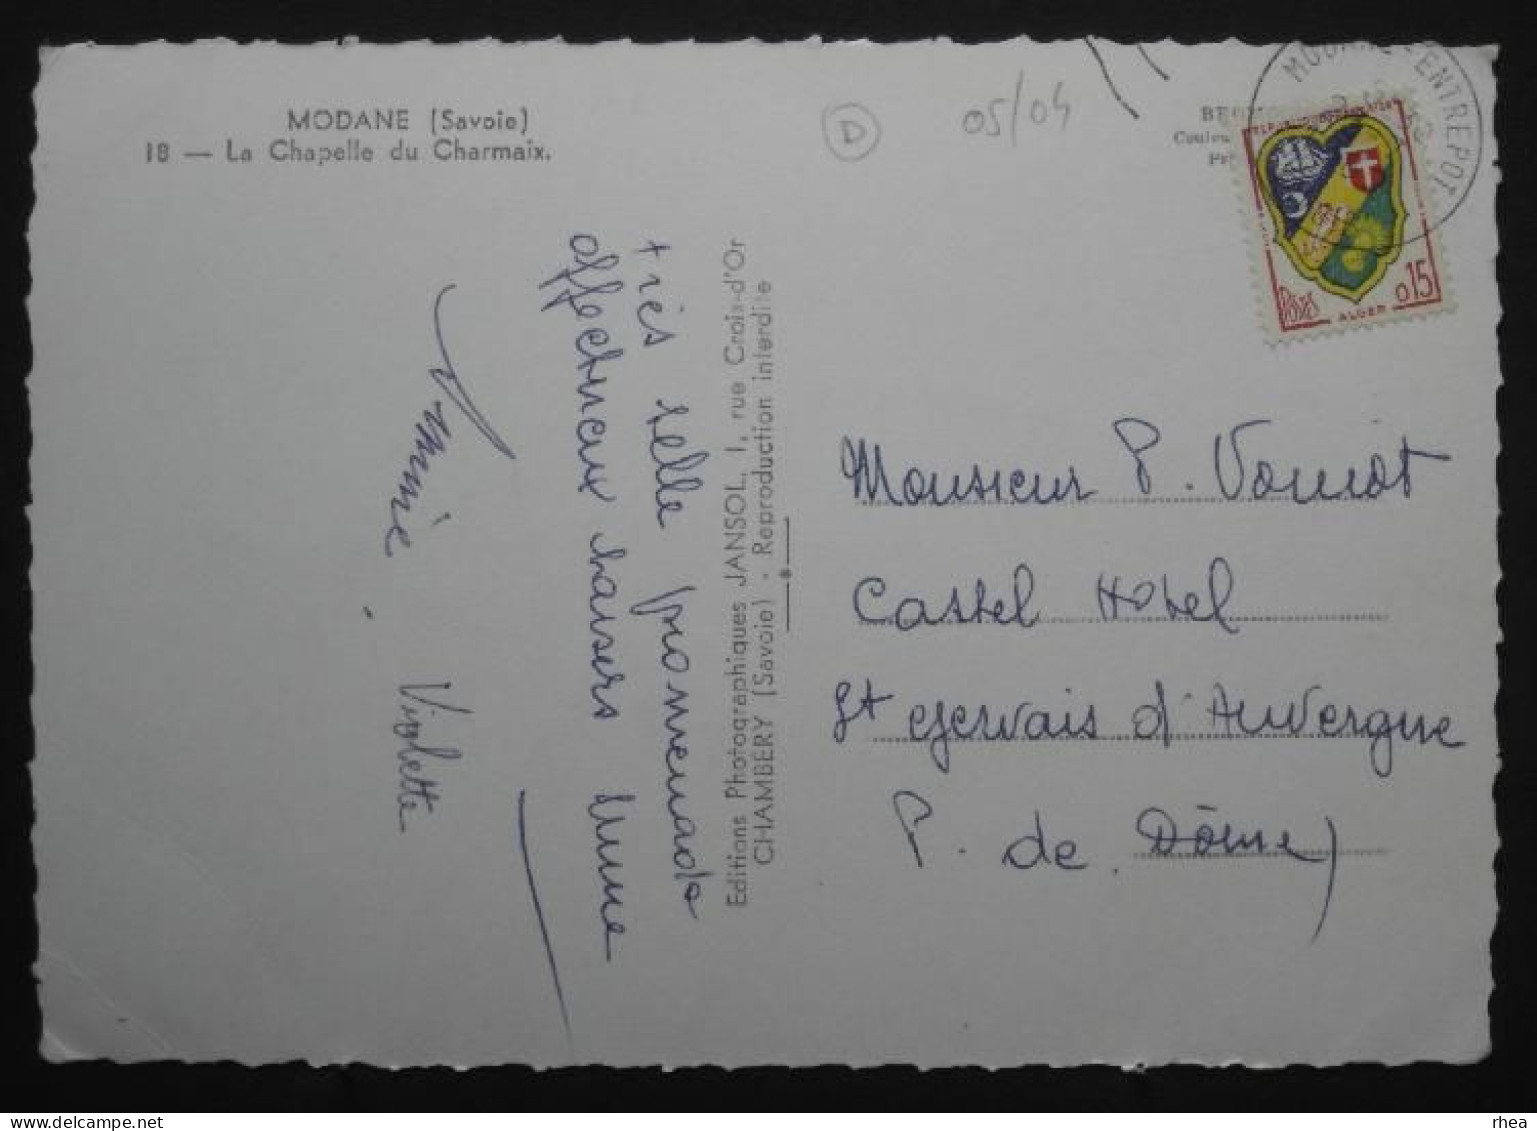 MODANE (Savoie)
18 — La Chapelle du Charmaix.
D
05/04
MODANE - ENTREPOT
REPUBLIQUE FRANCAISE
POSTES
ALGER
0.15
très belle promenade
affectueux baisers
Mimie. Violette
Editions Photographiques JANSOL, 1, rue Croix-d'Or
CHAMBERY (Savoie) - Reproduction interdite
Monsieur P. Voniot
Castel Hotel
St Gervais d'Auvergne
P. de Dôme)
rhea
delcampe.net